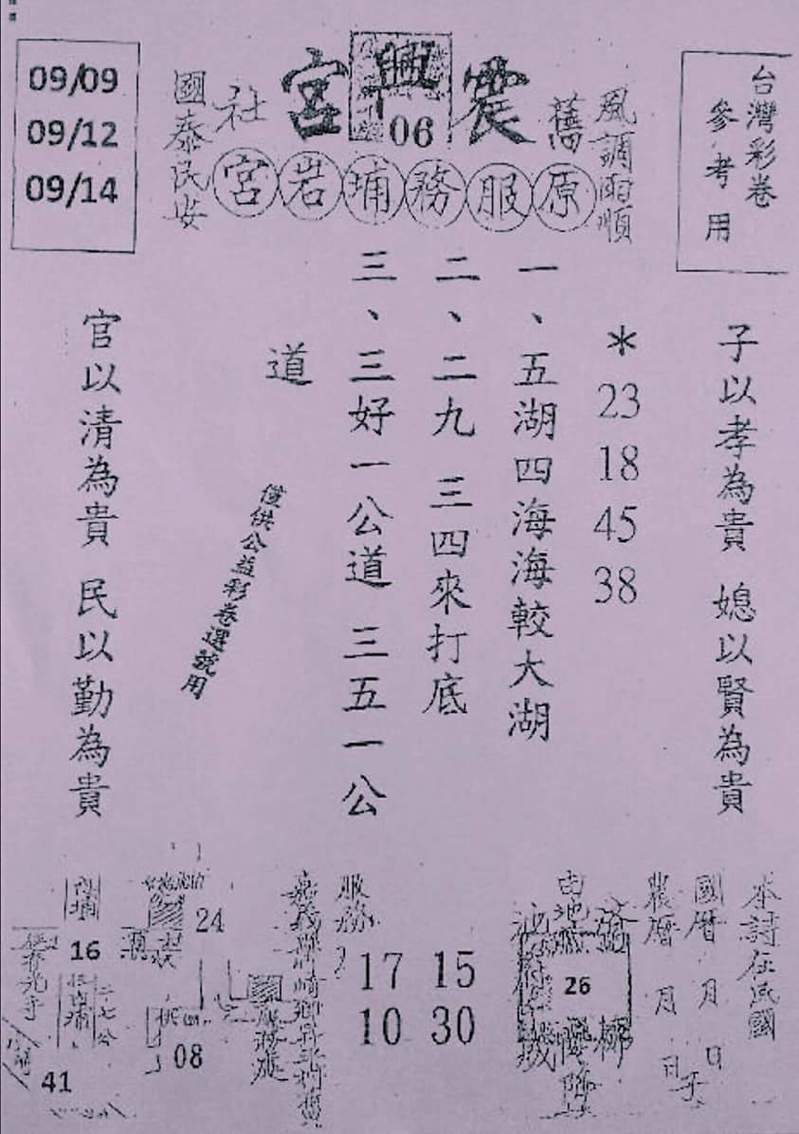 台灣彩卷
參考用
震興宮
06
風調雨順
舊
社
國泰民安
09/09
09/12
09/14
原服務埔岩宮
子以孝為貴 媳以賢為貴
*23 18 45 38
一、五湖四海海較大湖
二、二九 三四來打底
三、三好一公道 三五一公
道
僅供公益彩卷選號用
官以清為貴 民以勤為貴
本詩在民國
國曆 月 日
農曆 月 日
26
服務
17 15
10 30
24
16
08
41